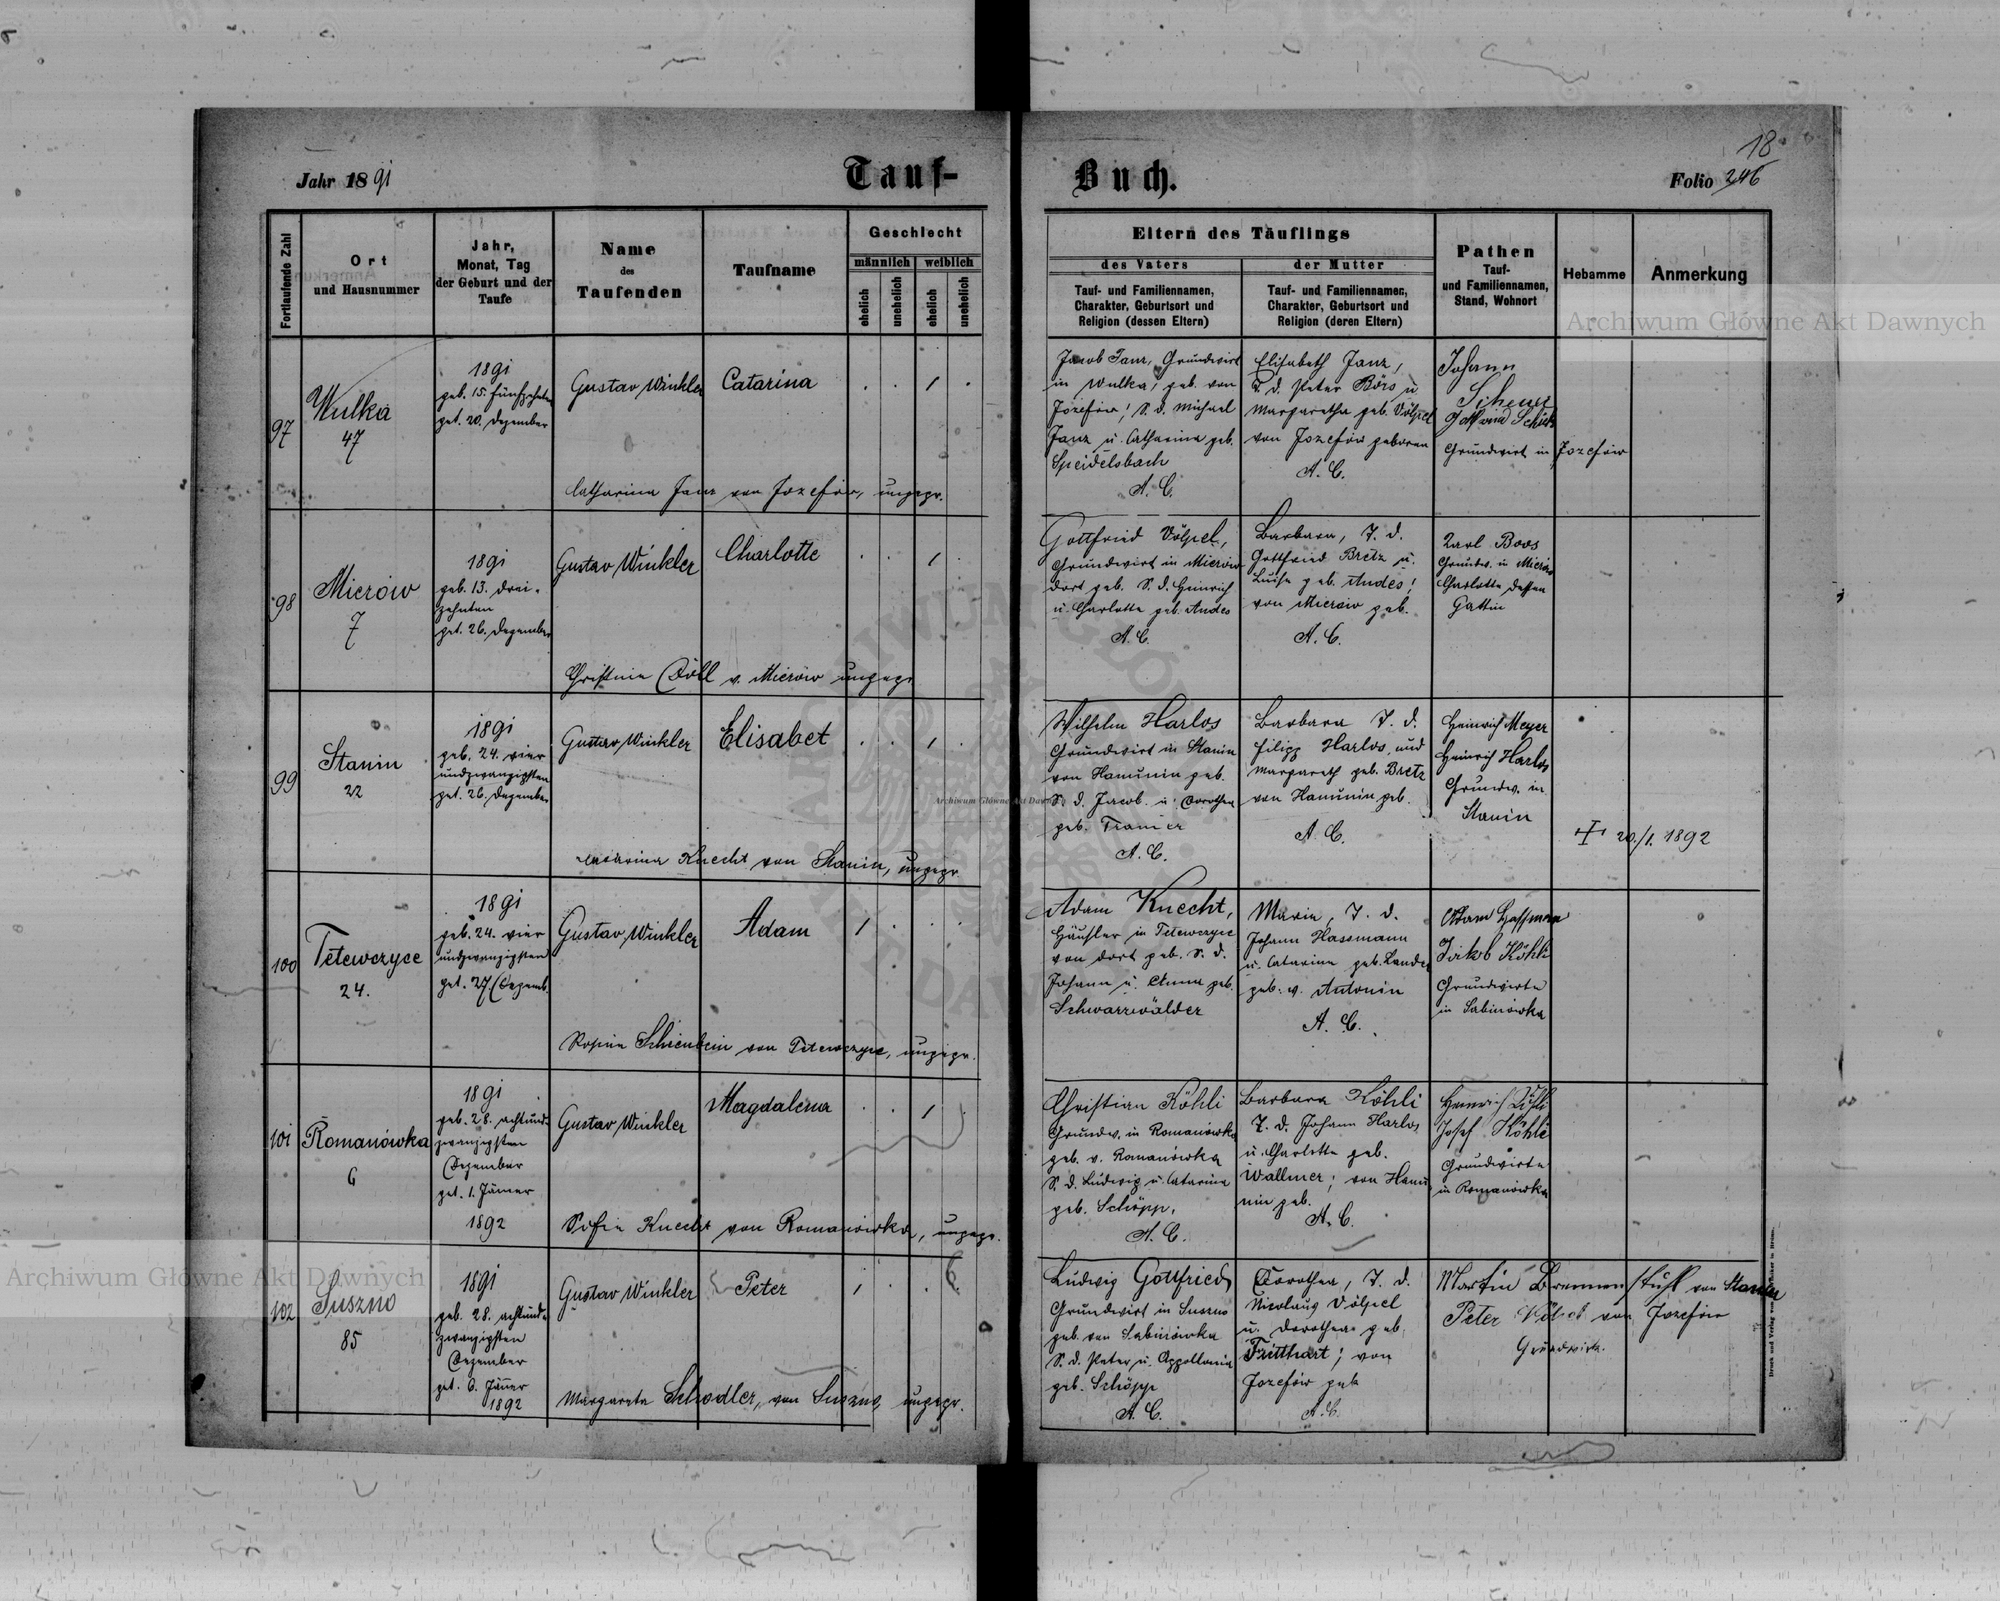 Jahr 1891
Tauf-
Buch.
18
Folio 246
Fortlaufende Zahl
Ort
und Hausnummer
Jahr,
Monat, Tag
der Geburt und der
Taufe
Name
des
Taufenden
Taufname
Geschlecht
männlich
weiblich
ehelich
unehelich
ehelich
unehelich
Eltern des Täuflings
des Vaters
Tauf- und Familiennamen,
Charakter, Geburtsort und
Religion (dessen Eltern)
der Mutter
Tauf- und Familiennamen,
Charakter, Geburtsort und
Religion (deren Eltern)
Pathen
Tauf-
und Familiennamen,
Stand, Wohnort
Hebamme
Anmerkung
97
Wulka
47
1891
geb. 15. fünfzehnten
get. 20. Dezember
Gustav Winkler
Catarina
Catharina Janz von Jozefów, ungepr.
Jacob Janz, Grundwirt
in Wulka, geb. von
Jozefów; S. d. Michael
Janz u. Catharina geb.
Speidelsbach
A. C.
Elisabeth Janz,
T. d. Peter Börs u
Margaretha geb. Völpel
von Jozefów geboren
A. C.
Johann
Gottfried
Grundwirt in Jozefów
98
Mierów
7
1891
geb. 13. drei-
zehnten
get. 26. Dezember
Gustav Winkler
Charlotte
Christine Döll v. Mierów ungepr
Gottfried Völpel,
Grundwirt in Mierów
dort geb. S. d. Heinrich
u. Charlotte geb. Andes
A. C.
Barbara, T. d.
Gottfried Bretz u.
Luise geb. Andes;
von Mierów geb.
A. C.
Karl Boos
Grundw. in Mierów
Charlotte dessen
Gattin
99
Stanin
22
1891
geb. 24. vier
undzwanzigsten
get. 26. Dezember
Gustav Winkler
Elisabet
Catarina Knecht von Stanin, ungepr.
Wilhelm Harlos
Grundwirt in Stanin
von Hanunin geb.
S. d. Jacob u. Dorothea
geb. Tramer
A. C.
Barbara T. d.
Filipp Harlos und
Margareth geb. Bretz
von Hanunin geb.
A. C.
Heinrich Meyer
Heinrich Harlos
Grundw. in
Stanin
20./1. 1892
100
Tetewczyce
24.
1891
geb. 24. vier
undzwanzigsten
get. 27. Dezemb.
Gustav Winkler
Adam
Rosina Schienbein von Tetewczyce, ungepr.
Adam Knecht,
Häusler in Tetewczyce
von dort geb. S. d.
Johann u. Anna geb.
Schwarzwälder
Maria, T. d.
Johann Hassmann
u. Catarina geb. Lander
geb. v. Antonin
A. C.
Adam Hassmann
Jakob Köhli
Grundwirte
in Sabinówka
101
Romanówka
6
1891
geb. 28. achtund-
zwanzigsten
Dezember
get. 1. Jänner
1892
Gustav Winkler
Magdalena
Sofie Knecht von Romanówka, ungepr.
Christian Köhli
Grundw. in Romanówka
geb. v. Romanówka
S. d. Ludwig u. Catarina
geb. Schöpp,
A. C.
Barbara Köhli
T. d. Johann Harlos
u. Charlotte geb.
Wallmer; von Hanu-
nin geb.
A. C.
Heinrich Köhli
Josef Köhli
Grundwirte
in Romanówka
102
Suszno
85
1891
geb. 28. achtund-
zwanzigsten
Dezember
get. 6. Jänner
1892
Gustav Winkler
Peter
Margareta Schodler, von Suszno, ungepr.
Ludwig Gottfried
Grundwirt in Suszno
geb. von Sabinówka
S. d. Peter u. Appollonia
geb. Schöpp
A. C.
Dorothea, T. d.
Nicolaus Völpel
u. Dorothea geb.
Tritthart; von
Jozefów geb
A. C.
Martin Brennenstuhl von Stanin
Peter Völpel von Jozefów
Grundwirte.
Archiwum Główne Akt Dawnych
Archiwum Główne Akt Dawnych
Archiwum Główne Akt Dawnych